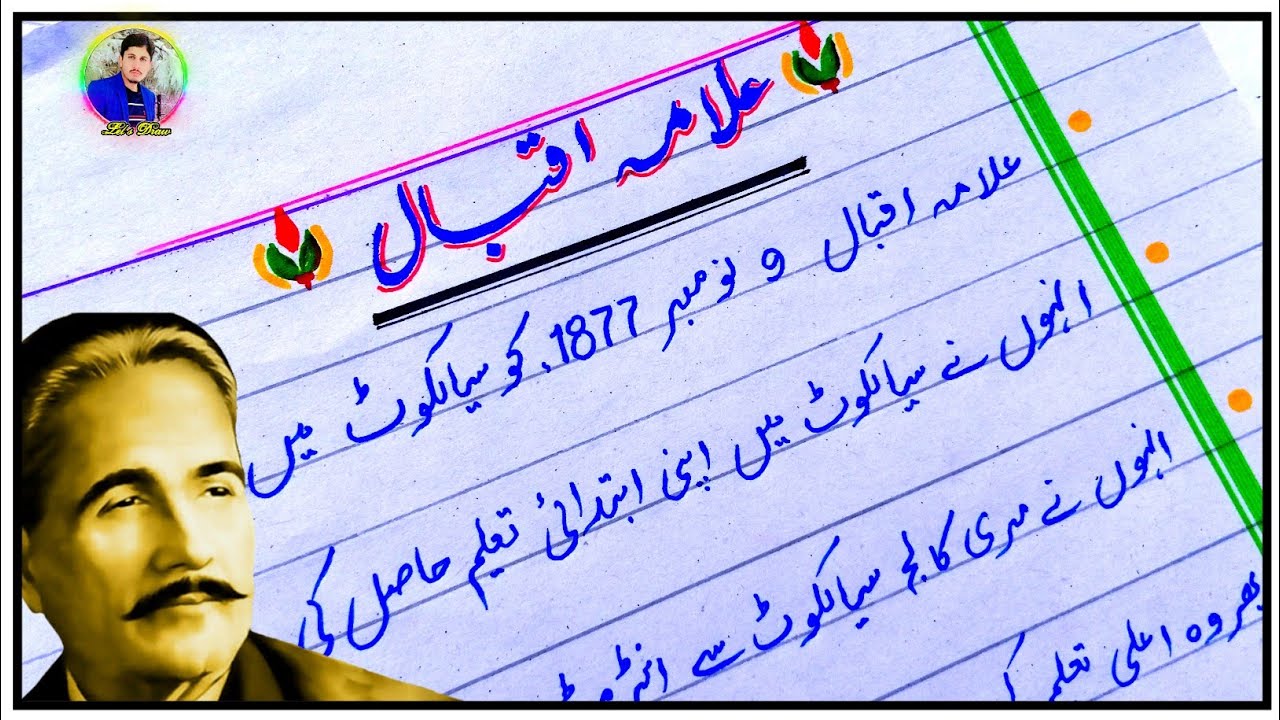 Let's Draw
علامہ اقبال
علامہ اقبال 9 نومبر 1877ء کو سیالکوٹ میں
انہوں نے سیالکوٹ میں اپنی ابتدائی تعلیم حاصل کی
انہوں نے مری کالج سیالکوٹ سے انٹرمیڈ
پھر وہ اعلی تعلیم کے